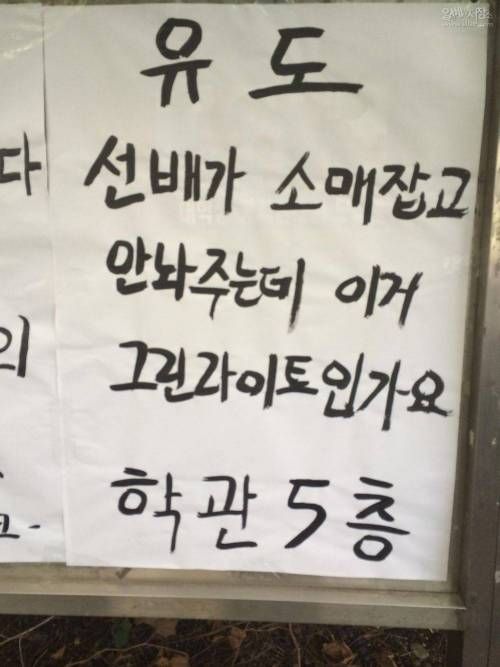 유도
다
선배가 소매잡고
안놔주는데 이거
의
그린라이트인가요
학관 5층